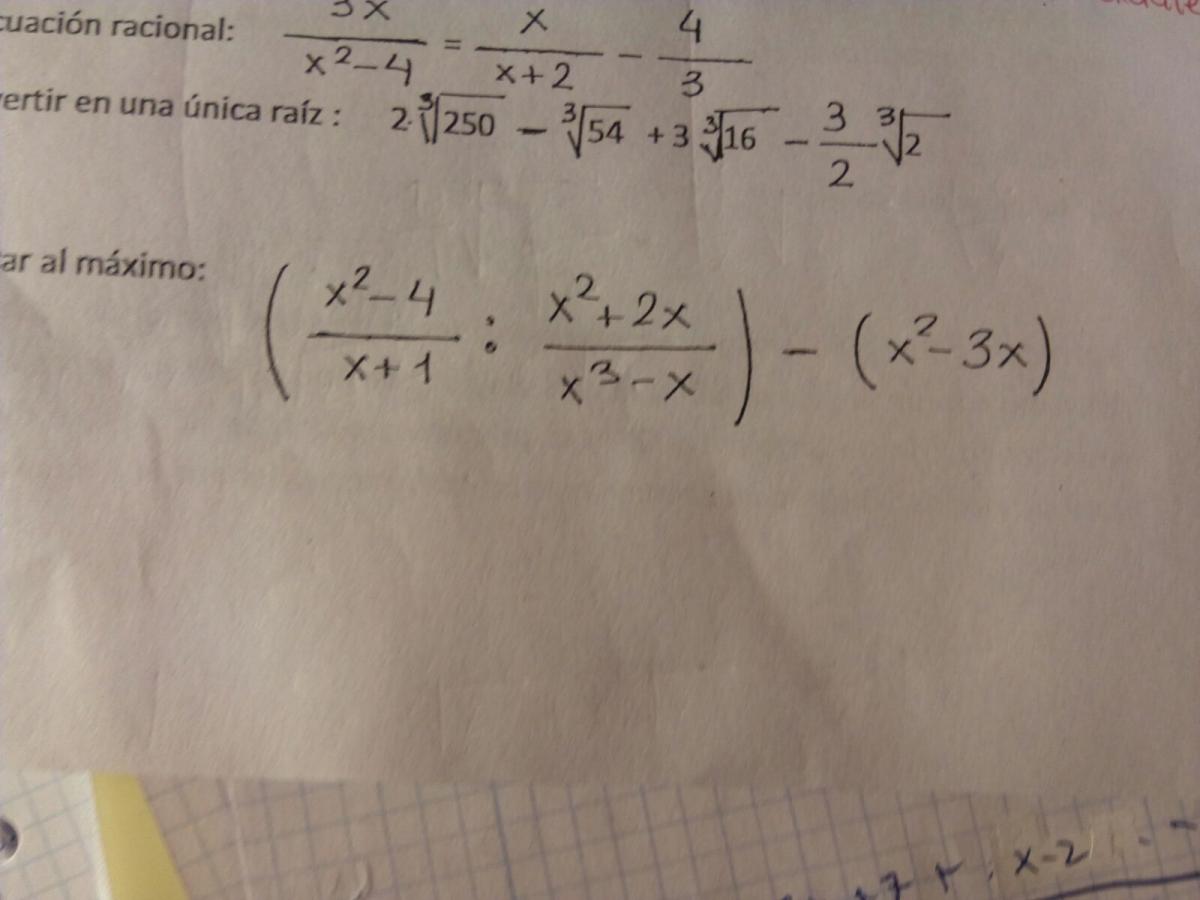 cuación racional: 3x/(x²-4) = x/(x+2) - 4/3
vertir en una única raíz : 2·∛250 - ∛54 + 3 ∛16 - 3/2 ∛2
ar al máximo: ( (x²-4)/(x+1) : (x²+2x)/(x³-x) ) - (x²-3x)
x-2